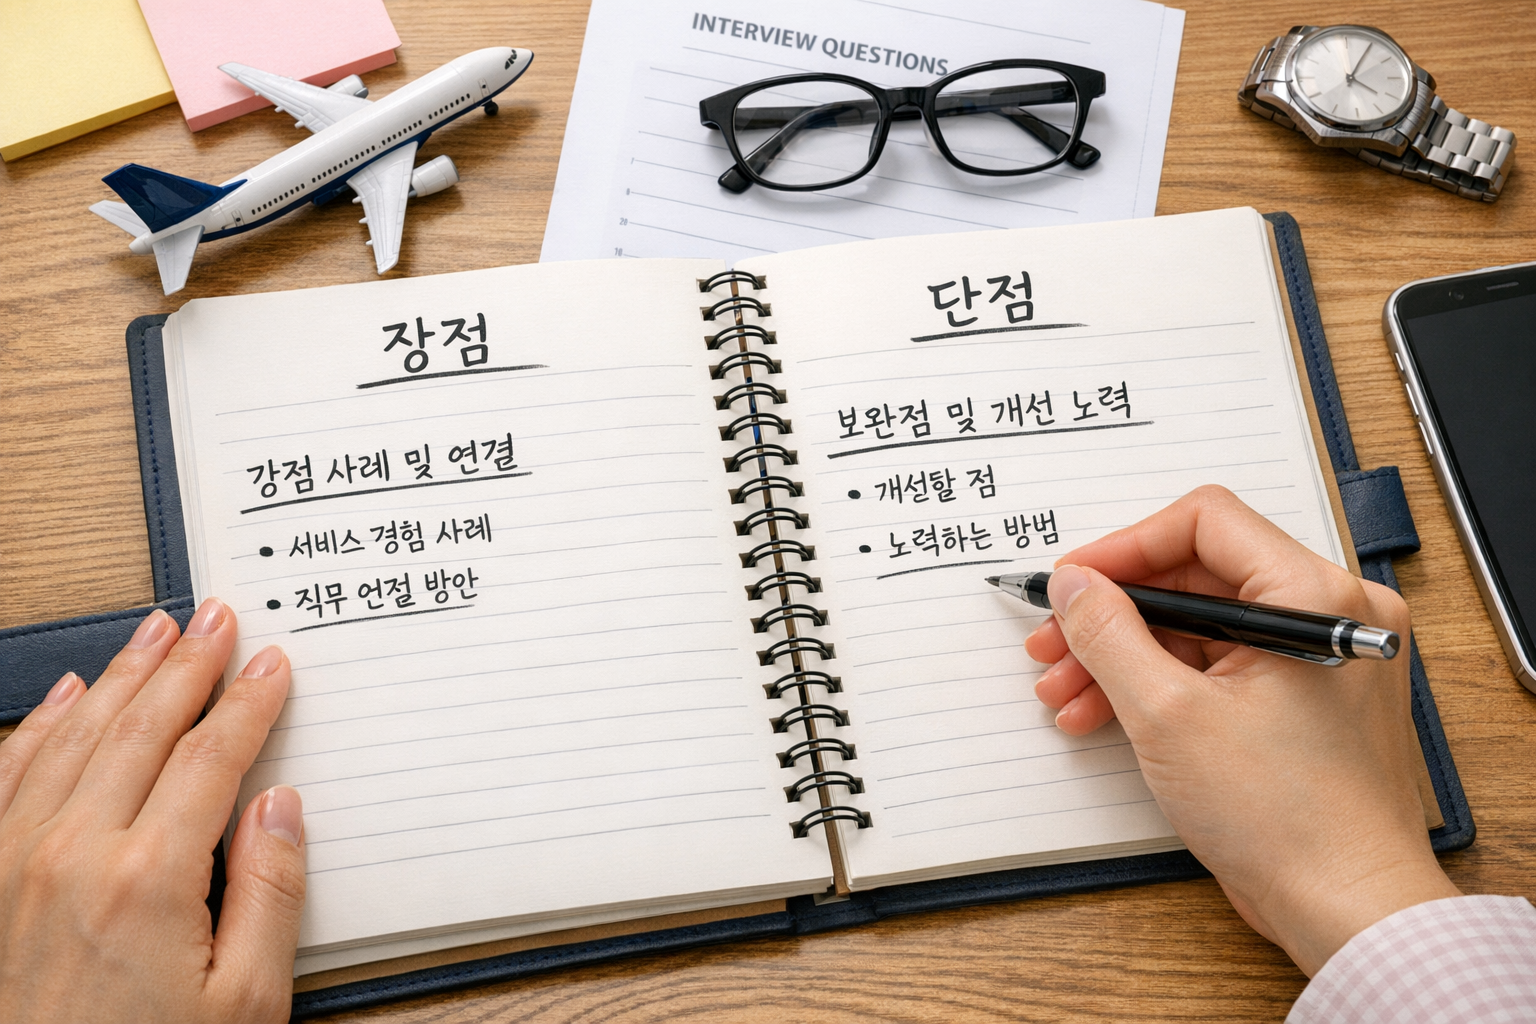 INTERVIEW QUESTIONS
장점
강점 사례 및 연결
• 서비스 경험 사례
• 직무 언절 방안
단점
보완점 및 개선 노력
• 개선할 점
• 노력하는 방범